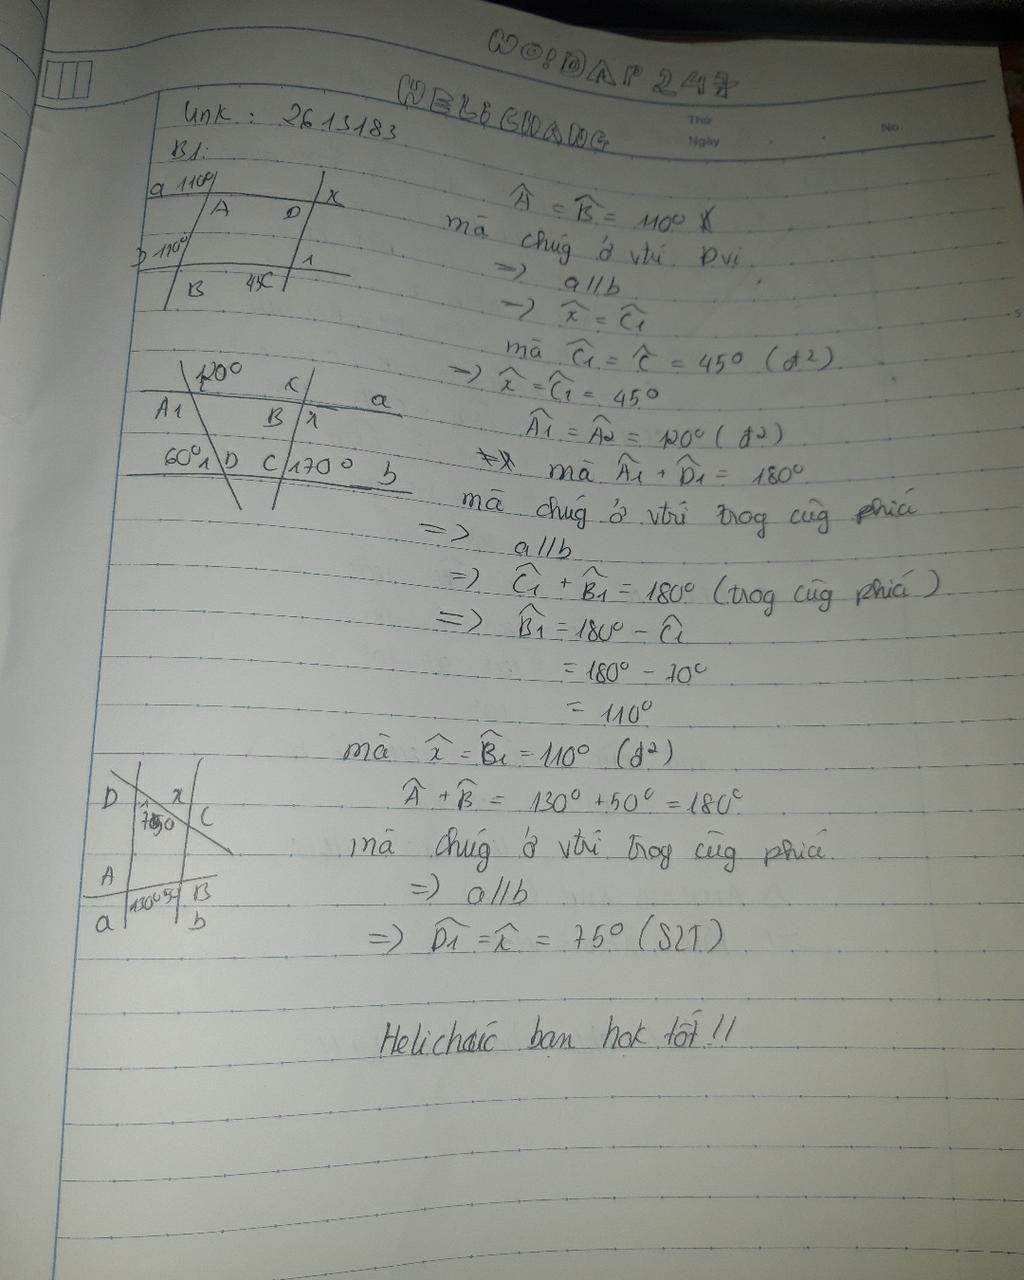 HOIDAP247
HELICHANG
Thứ
Ngày
No.
Link : 2613183
B1:
a 110°
A
D
x
b 110°
1
B
45°
C
Â = B̂ = 110°
mà chúg ở vtrí Đvị
=> a//b
=> x̂ = Ĉ1
mà Ĉ1 = Ĉ = 45° (đ²)
=> x̂ = Ĉ1 = 45°
120°
x
a
A1
B
60° 1 D
C 1 70°
b
Â1 = Â2 = 120° (đ²)
mà Â1 + D̂1 = 180°
mà chúg ở vtrí trog cùg phíá
=> a//b
=> Ĉ1 + B̂1 = 180° (trog cùg phíá)
=> B̂1 = 180° - Ĉ1
= 180° - 70°
= 110°
mà x̂ = B̂1 = 110° (đ²)
D
1
x
C
A
130°
B
a
b
Â + B̂ = 130° + 50° = 180°
mà chúg ở vtrí trog cùg phíá
=> a//b
=> D̂1 = x̂ = 75° (SLT)
Helichúc bạn hok tốt !!